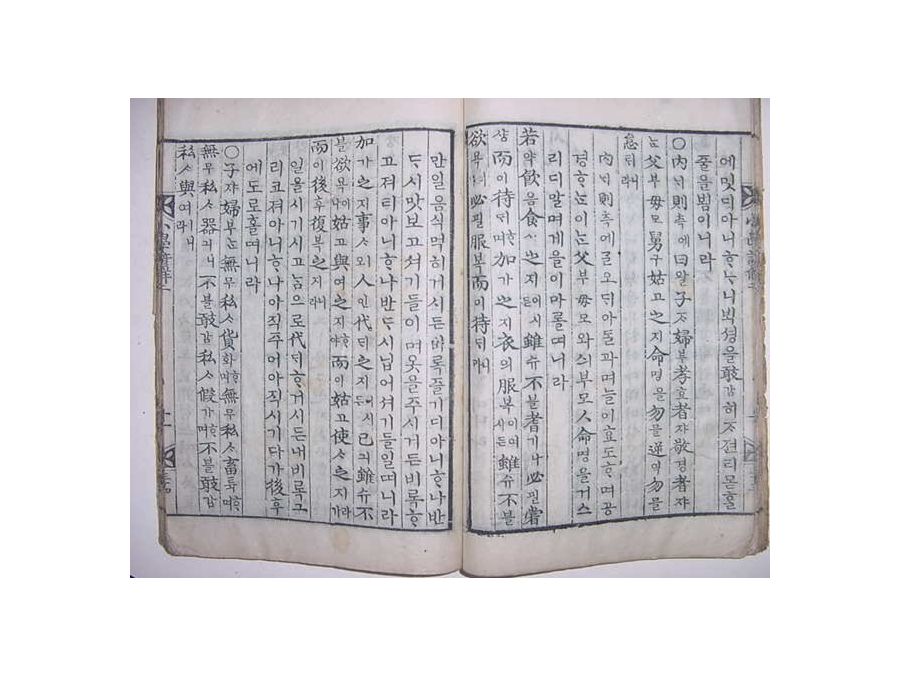 에밋디아니ᄒᆞᄂᆞ니ᄇᆡᆨ셩을敢감히ᄌᆞ젼티몯ᄒᆞᆯ
줄을뵘이니라
○內ᄂᆡ則측에曰왈子ᄌᆞ婦부孝효者쟈敬경者쟈
ᄂᆞᆫ父부母모舅구姑고之지命명을勿믈逆역勿믈
怠ᄐᆡ니라
內ᄂᆡ則측에ᄀᆞᆯ오ᄃᆡ아ᄃᆞᆯ과며ᄂᆞᆯ이효도ᄒᆞ며공
경ᄒᆞᄂᆞᆫ이ᄂᆞᆫ父부母모와싀부모人命명을거스
리디말며게을이마롤띠니라
若약飮음食ᄉᆞ之지어시든雖슈不블耆기나必필嘗
샹而이待ᄃᆡᄒᆞ며加가之지衣의服복이어시든雖슈不블
欲욕이나必필服복而이待ᄃᆡ니라
만일음식먹히거시든비록즐기디아니ᄒᆞ나반
ᄃᆞ시맛보고셔기들이며옷을주시거든비록ᄒᆞ
고져티아니ᄒᆞ나반ᄃᆞ시닙어셔기들일띠니라
加가之지事ᄉᆞ오人인代ᄃᆡ之지어시든己긔雖슈不
블欲욕이나姑고與여之지ᄒᆞ야而이姑고使ᄉᆞ之지라가
而이後후復복之지니라
일올시기시고ᄂᆞᆷ으로代ᄃᆡᄒᆞ거시든내비록그
리코져아니ᄒᆞ나아직주어아직시기다가後후
에도로홀띠니라
○子ᄌᆞ婦부ᄂᆞᆫ無무私ᄉᆞ貨화ᄒᆞ며無무私ᄉᆞ畜튝ᄒᆞ며
無무私ᄉᆞ器긔니不블敢감私ᄉᆞ假가ᄒᆞ며不블敢감
私ᄉᆞ與여ㅣ니라